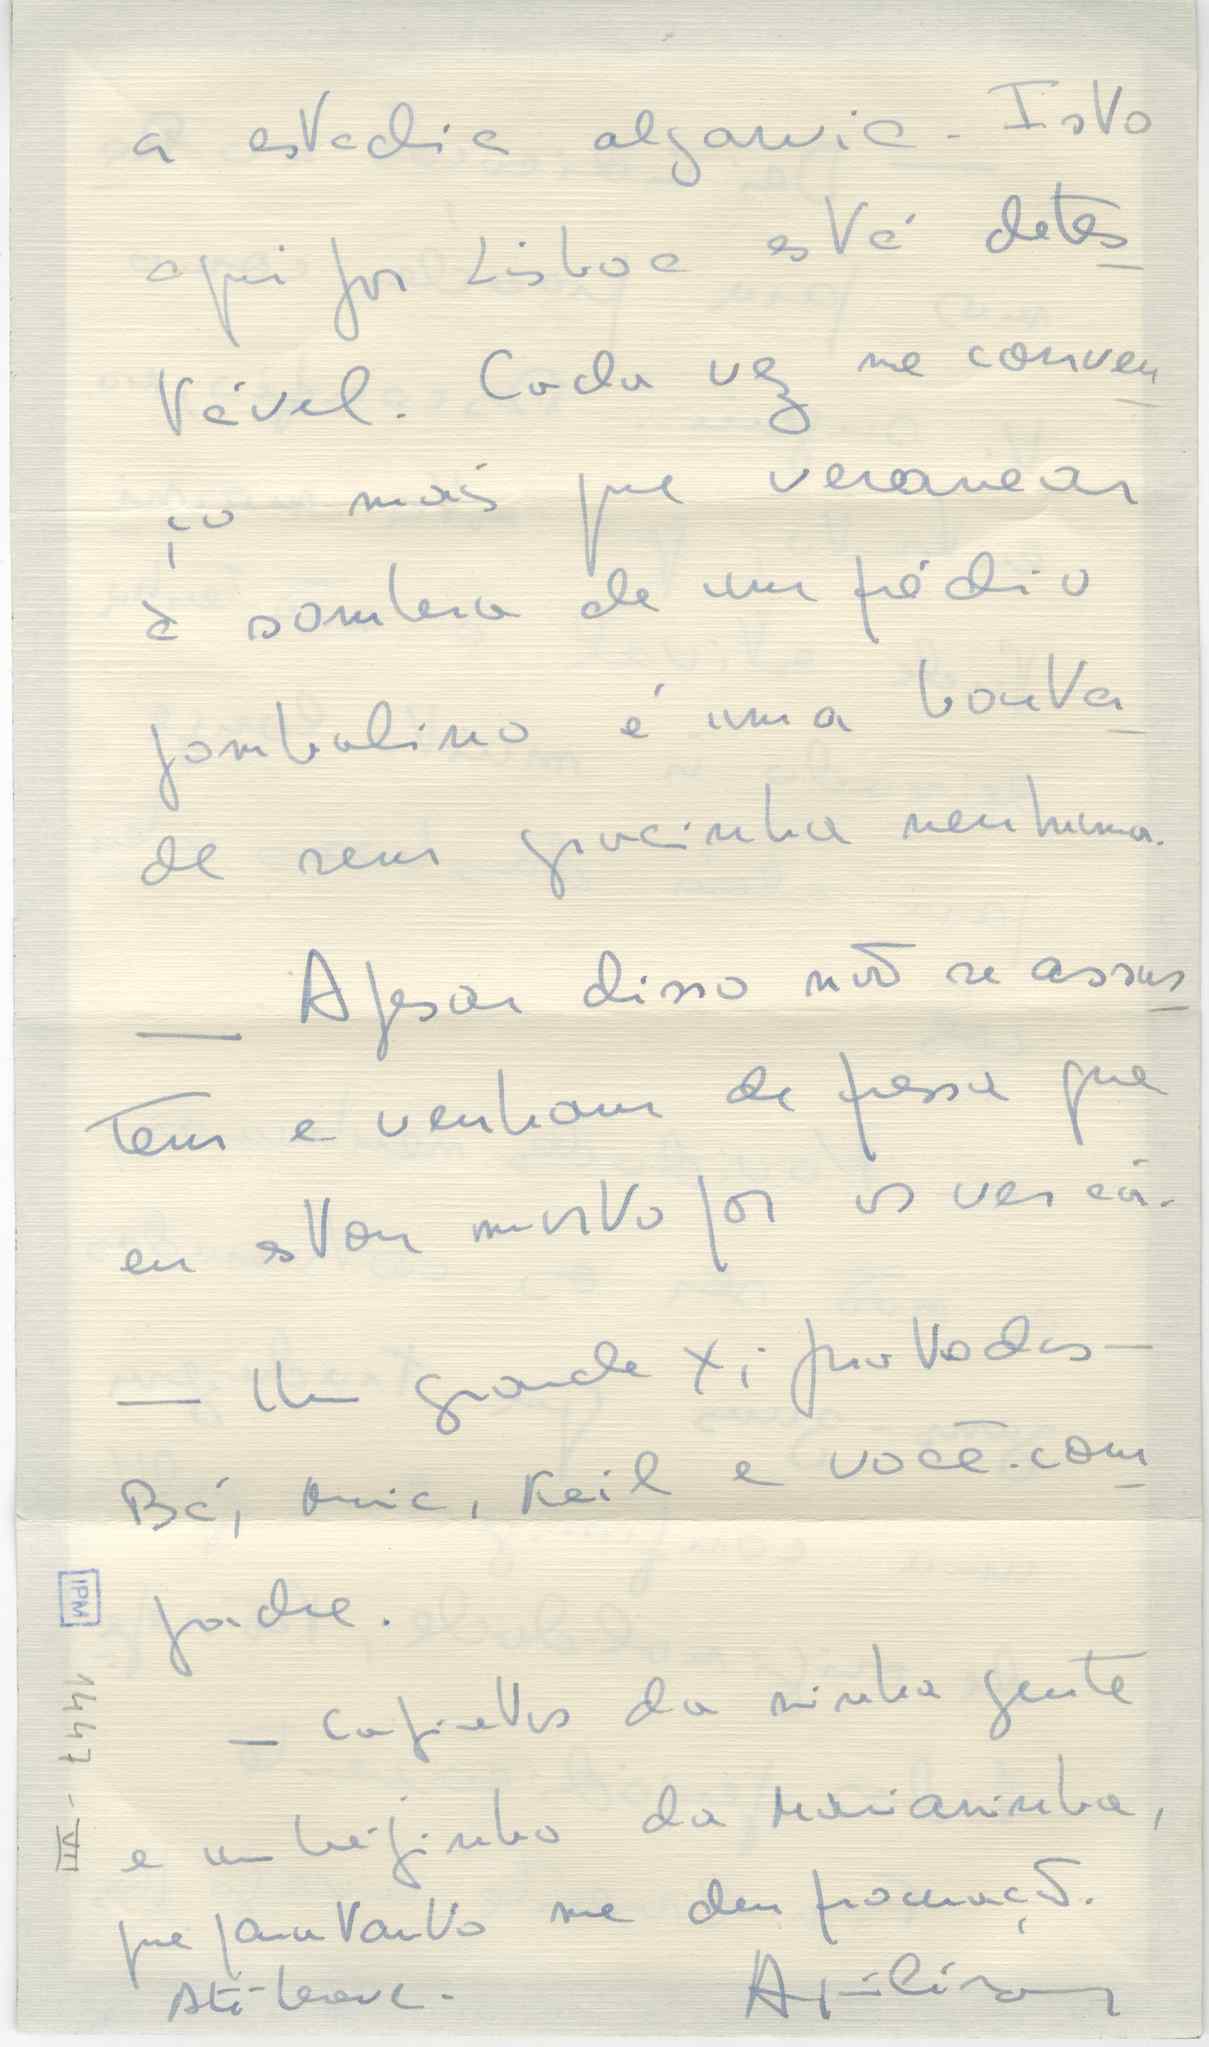 a estadia algarvia - Isto
aqui por Lisboa está detes
tável. Cada vez me conven
ço mais que veranear
à sombra de um prédio
pombalino é uma bonta
de sem gracinha nenhuma.
— Apesar disso não se assus
tem e venham de pressa que
eu estou morto por os ver cá.
— Um grande xi pra todos —
Bá, Keil e você. com
padre.
— capiettos da minha gente
e um beijinho da Marianinha,
que para tanto me deu procuração.
Até breve.
IPM
1447 - VII